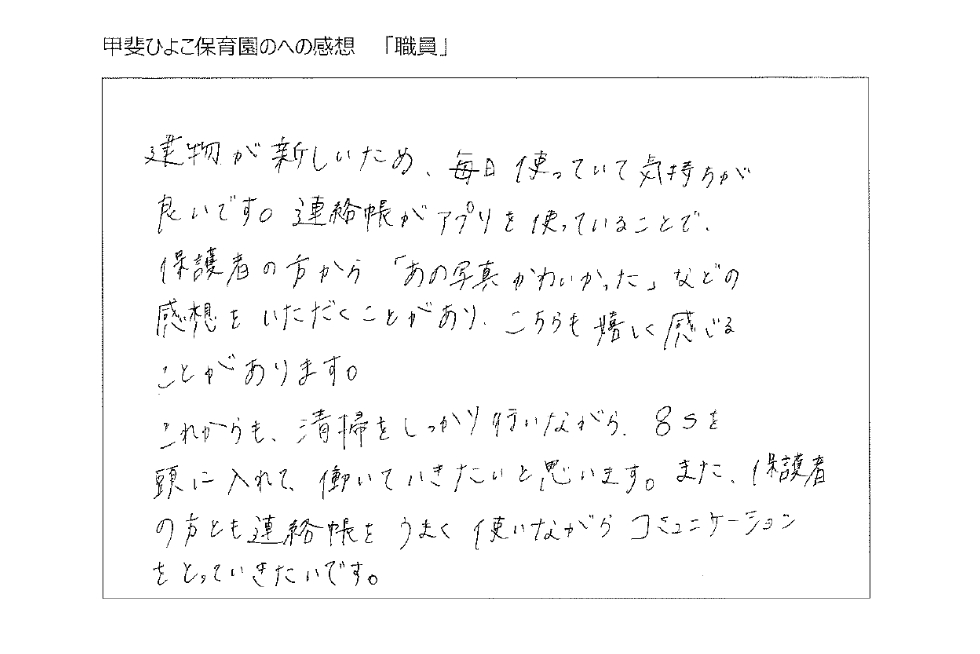 甲斐ひよこ保育園のへの感想　「職員」
建物が新しいため、毎日使っていて気持ちが
良いです。連絡帳がアプリを使っていることで、
保護者の方から「あの写真かわいかった」などの
感想をいただくことがあり、こちらも嬉しく感じる
ことがあります。
これからも、清掃をしっかり行いながら、8Sを
頭に入れて、働いていきたいと思います。また、保護者
の方とも連絡帳をうまく使いながらコミュニケーション
をとっていきたいです。